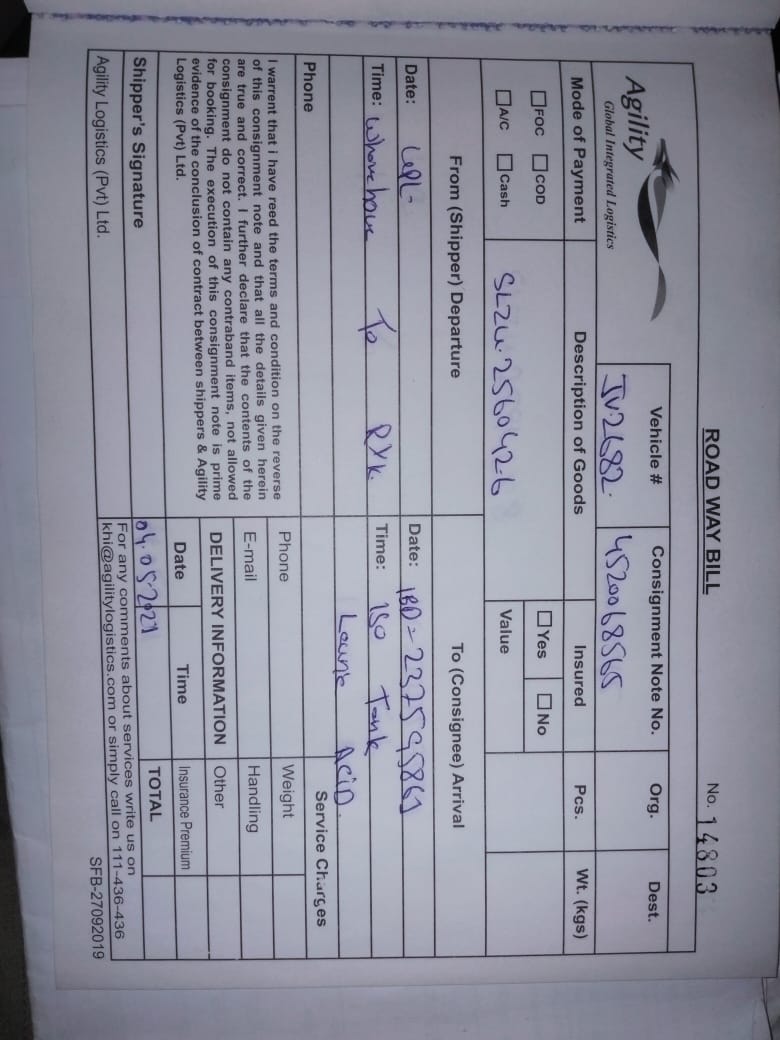 ROAD WAY BILL
No. 14803
Agility
Global Integrated Logistics
Vehicle #
JV.2682.
Consignment Note No.
4520068565
Org.
Dest.
Mode of Payment
Description of Goods
Insured
Pcs.
Wt. (kgs)
FOC COD
A/C Cash
SLZU.256042.6
Yes No
Value
From (Shipper) Departure
To (Consignee) Arrival
Date: UPL-
Date: IBD-237595861
Time: Whovehove To RYK.
Time: ISO Tank
ACiD.
Phone
Service Charges
I warrent that i have reed the terms and condition on the reverse
of this consignment note and that all the details given herein
are true and correct. I further declare that the contents of the
consignment do not contain any contraband items, not allowed
for booking. The execution of this consignment note is prime
evidence of the conclusion of contract between shippers & Agility
Logistics (Pvt) Ltd.
Phone
E-mail
DELIVERY INFORMATION
Date Time
04.05.2021
Weight
Handling
Other
Insurance Premium
TOTAL
Shipper's Signature
Agility Logistics (Pvt) Ltd.
For any comments about services write us on
khi@agilitylogistics.com or simply call on 111-436-436
SFB-27092019